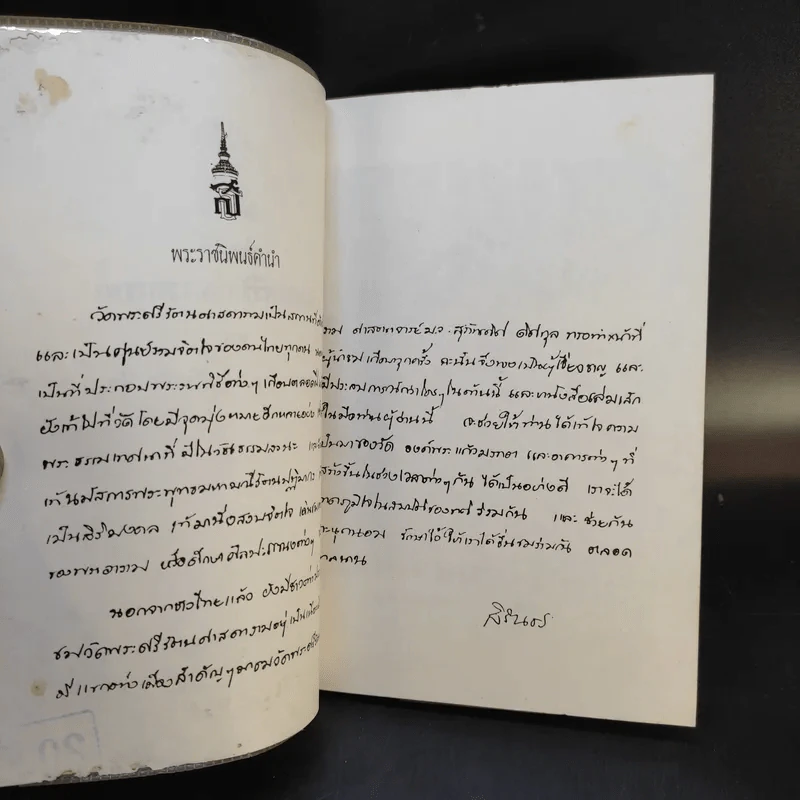 พระราชนิพนธ์คำนำ
วัดพระศรีรัตนศาสดารามเป็นสถานที่
และเป็นศูนย์รวมจิตใจของคนไทยทุกคน
เป็นที่ประกอบพระราชพิธีต่างๆ เกือบตลอด
ยังเข้าไปที่วัดโดยมีจุดมุ่งหมายอีกหลายอย่าง
พระธรรมเทศนาที่มีในวันธรรมสวนะ
เข้านมัสการพระพุทธมหามณีรัตนปฏิมากร
เป็นสิริมงคล เข้ามาเพื่อสงบจิตใจ
ของพระอาราม หรือศึกษาศิลปะแขนงต่างๆ
นอกจากชาวไทยแล้ว ยังมีชาวต่าง
ชมวัดพระศรีรัตนศาสดารามอยู่เป็น
มีแขกอย่างเมืองสำคัญๆ มาชมวัดพระศรี
ศาสตราจารย์ ม.จ. สุภัทรดิศ ดิศกุล ทรงทำหน้าที่
ผู้นำชมเกือบทุกครั้ง ฉะนั้นจึงทรงเป็นผู้เชี่ยวชาญ และ
มีประสบการณ์มาใครๆ ในด้านนี้ และหนังสือเล่มเล็ก
ในมือท่านผู้อ่านนี้ จะช่วยให้ท่านได้เข้าใจความ
เป็นมาของวัด องค์พระแก้วมรกต และอาคารต่างๆ ที่
สร้างขึ้นในช่วงเวลาต่างๆ กัน ได้เป็นอย่างดี เราจะได้
ภูมิใจในสมบัติของชาติร่วมกัน และช่วยกัน
ทะนุถนอม รักษาไว้ให้เราได้ชื่นชมร่วมกัน ตลอด
กาลนาน
สิรินธร